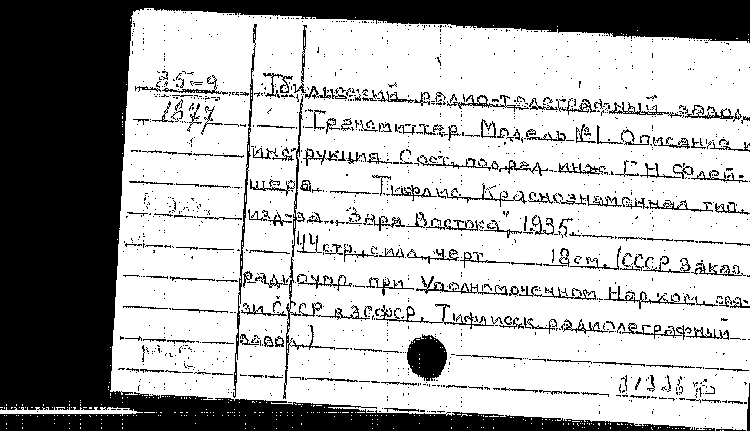 35-9
1877
Тбилисский радио-телеграфный завод
Трансмиттер. Модель №1. Описание и
инструкция. Сост. под ред. инж. Г.Н. Флей-
шера. Тифлис, Краснознаменная тип.
изд-ва „Заря Востока", 1935.
44 стр., с илл., черт. 18 см. (СССР. Закав.
радиоупр. при Уполномоченном Нар. ком. свя-
зи СССР в ЗСФСР. Тифлисск. радиолеграфный
завод)